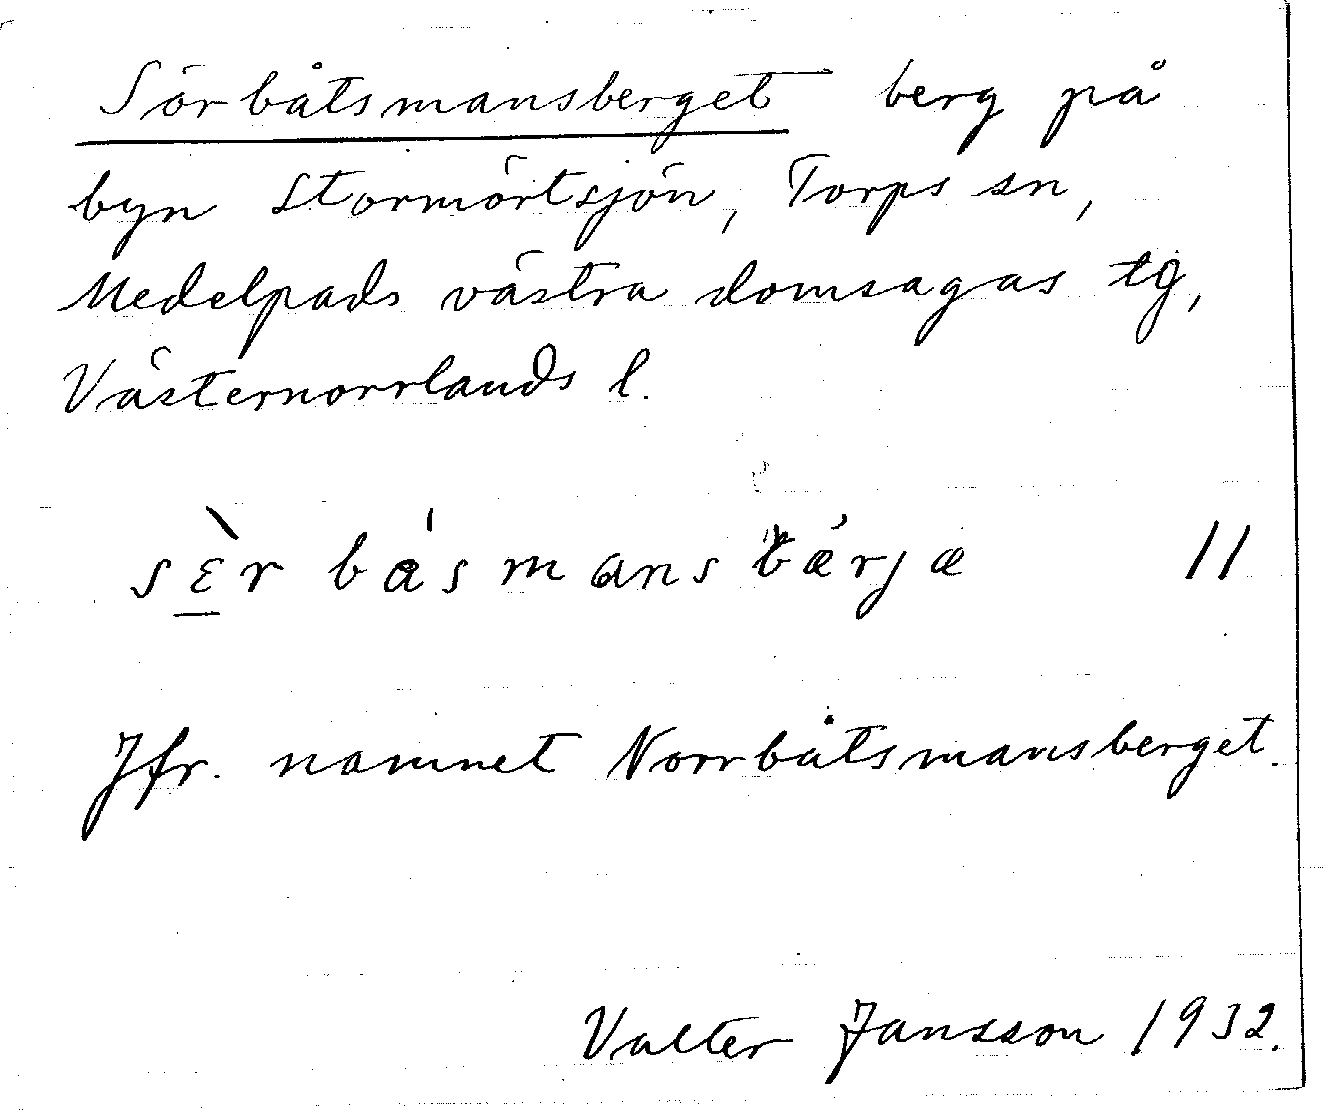 Sörbåtsmansberget berg på
byn Stormörtsjön, Torps sn,
Medelpads västra domsagas tg,
Västernorrlands l.
sɛ̀r básmansbǽrjæ //
Jfr. namnet Norrbåtsmansberget.
Valter Jansson 1932.